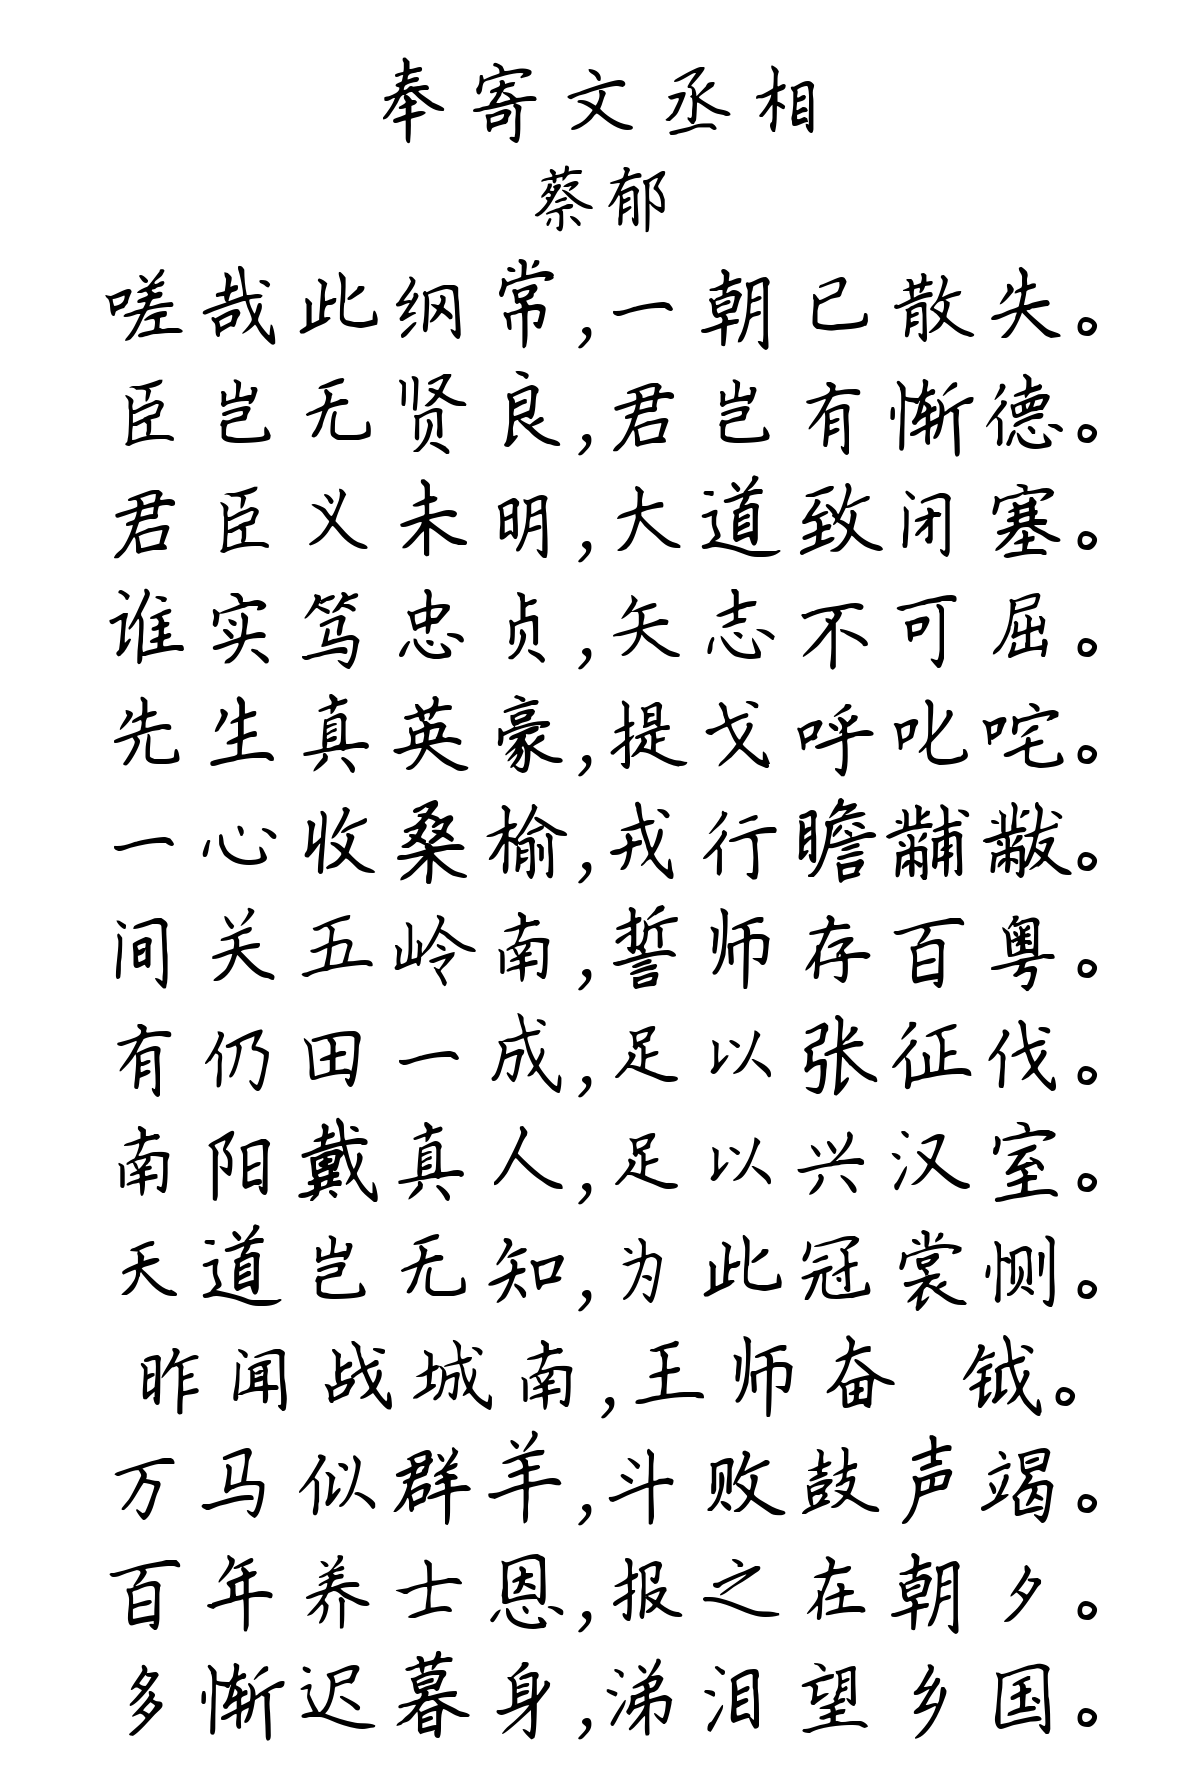 奉寄文丞相
蔡郁
嗟哉此纲常,一朝已散失。
臣岂无贤良,君岂有惭德。
君臣义未明,大道致闭塞。
谁实笃忠贞,矢志不可屈。
先生真英豪,提戈呼叱咤。
一心收桑榆,戎行瞻黼黻。
间关五岭南,誓师存百粤。
有仍田一成,足以张征伐。
南阳戴真人,足以兴汉室。
天道岂无知,为此冠裳恻。
昨闻战城南,王师奋 钺。
万马似群羊,斗败鼓声竭。
百年养士恩,报之在朝夕。
多惭迟暮身,涕泪望乡国。